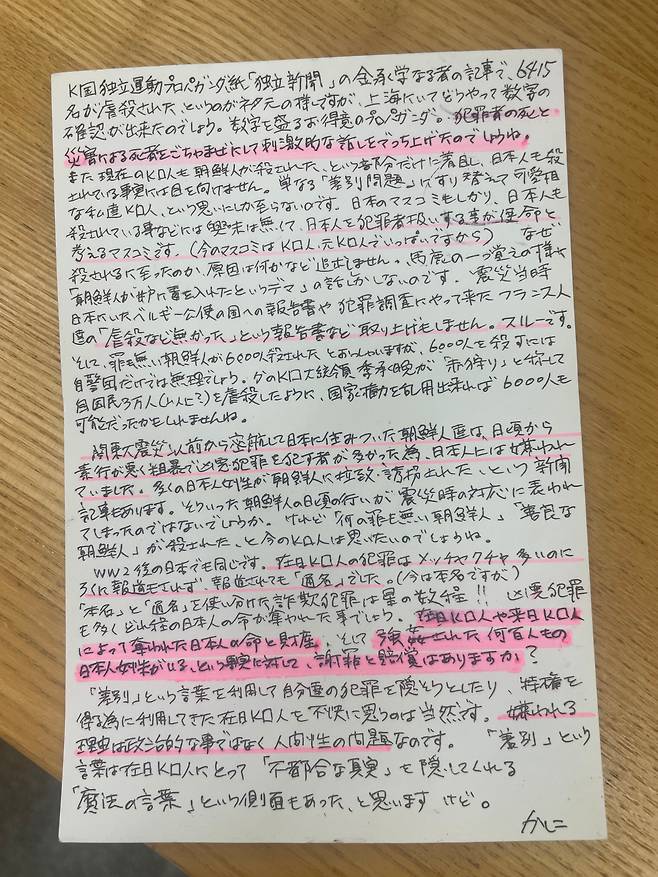 K国独立運動プロパガンダ紙「独立新聞」の金承学なる者の記事で、6415
名が虐殺された、というのがネタ元の様ですが、上海にいてどうやって数字の
確認が出来たのでしょう。数字を盛るお得意のプロパガンダ。犯罪者の死と
災害による死者をごちゃまぜにして刺激的な話しをでっち上げたのでしょうね。
また現在のK口人も朝鮮人が殺された、という部分だけに着目し、日本人も殺
されている事実には目を向けません。単なる「差別問題」にすり替えて可愛相
な私達K口人、という思いにしか至らないのです。日本のマスコミもしかり、日本人も
殺されている事などには興味は無くて、日本人を犯罪者扱いする事が使命と
考えるマスコミです。(今のマスコミはK口人、元K口人でいっぱいですから) なぜ
殺されるに至ったのか、原因は何かなど追求しません。馬鹿の一つ覚えの様に
「朝鮮人が井戸に毒を入れたというデマ」の話しかしないのです。震災当時
日本にいたベルギー公使の国への報告書や犯罪調査にやって来たフランス人
達の「虐殺など無かった」という報告書など取り上げもしません。スルーです。
そして、罪も無い朝鮮人が6000人殺されたとおっしゃいますが、6000人を殺すには
自警団だけでは無理でしょう。グのK口大統領李承晩が「赤狩り」と称して
自国民3万人(以上?)を虐殺したように、国家権力を乱用出来れば6000人も
可能だったかもしれませんね。
関東大震災以前から密航して日本に住みついた朝鮮人達は、日頃から
素行が悪く粗暴で凶悪犯罪を犯す者が多かった為、日本人には嫌われ
ていました。多くの日本人女性が朝鮮人に拉致、誘拐された、という新聞
記事もあります。そういった朝鮮人の日頃の行いが震災時の対応に表われ
てしまったのではないでしょうか。けれど「何の罪も無い朝鮮人」「善良な
朝鮮人」が殺された、と今のK口人は思いたいのでしょうね。
WW2後の日本でも同じです。在日K口人の犯罪はメッチャクチャ多いのに
ろくに報道もされず、報道されても「通名」でした。(今は本名ですか)
「本名」と「通名」を使い分けた詐欺犯罪は星の数程!! 凶悪犯罪
も多くどれ程の日本人の命が奪われた事でしょう。在日K口人や来日K口人
によって奪われた日本人の命と財産、そして強姦された何百人もの
日本人女性がいる、という事実に対して、謝罪と賠償はありますか?
「差別」という言葉を利用して自分達の犯罪を隠そうとしたり、特権を
得る為に利用してきた在日K口人を不快に思うのは当然です。嫌われる
理由は政治的な事ではなく人間性の問題なのです。「差別」という
言葉は在日K口人にとって「不都合な真実」を隠してくれる
「魔法の言葉」という側面もあった、と思いますけど。